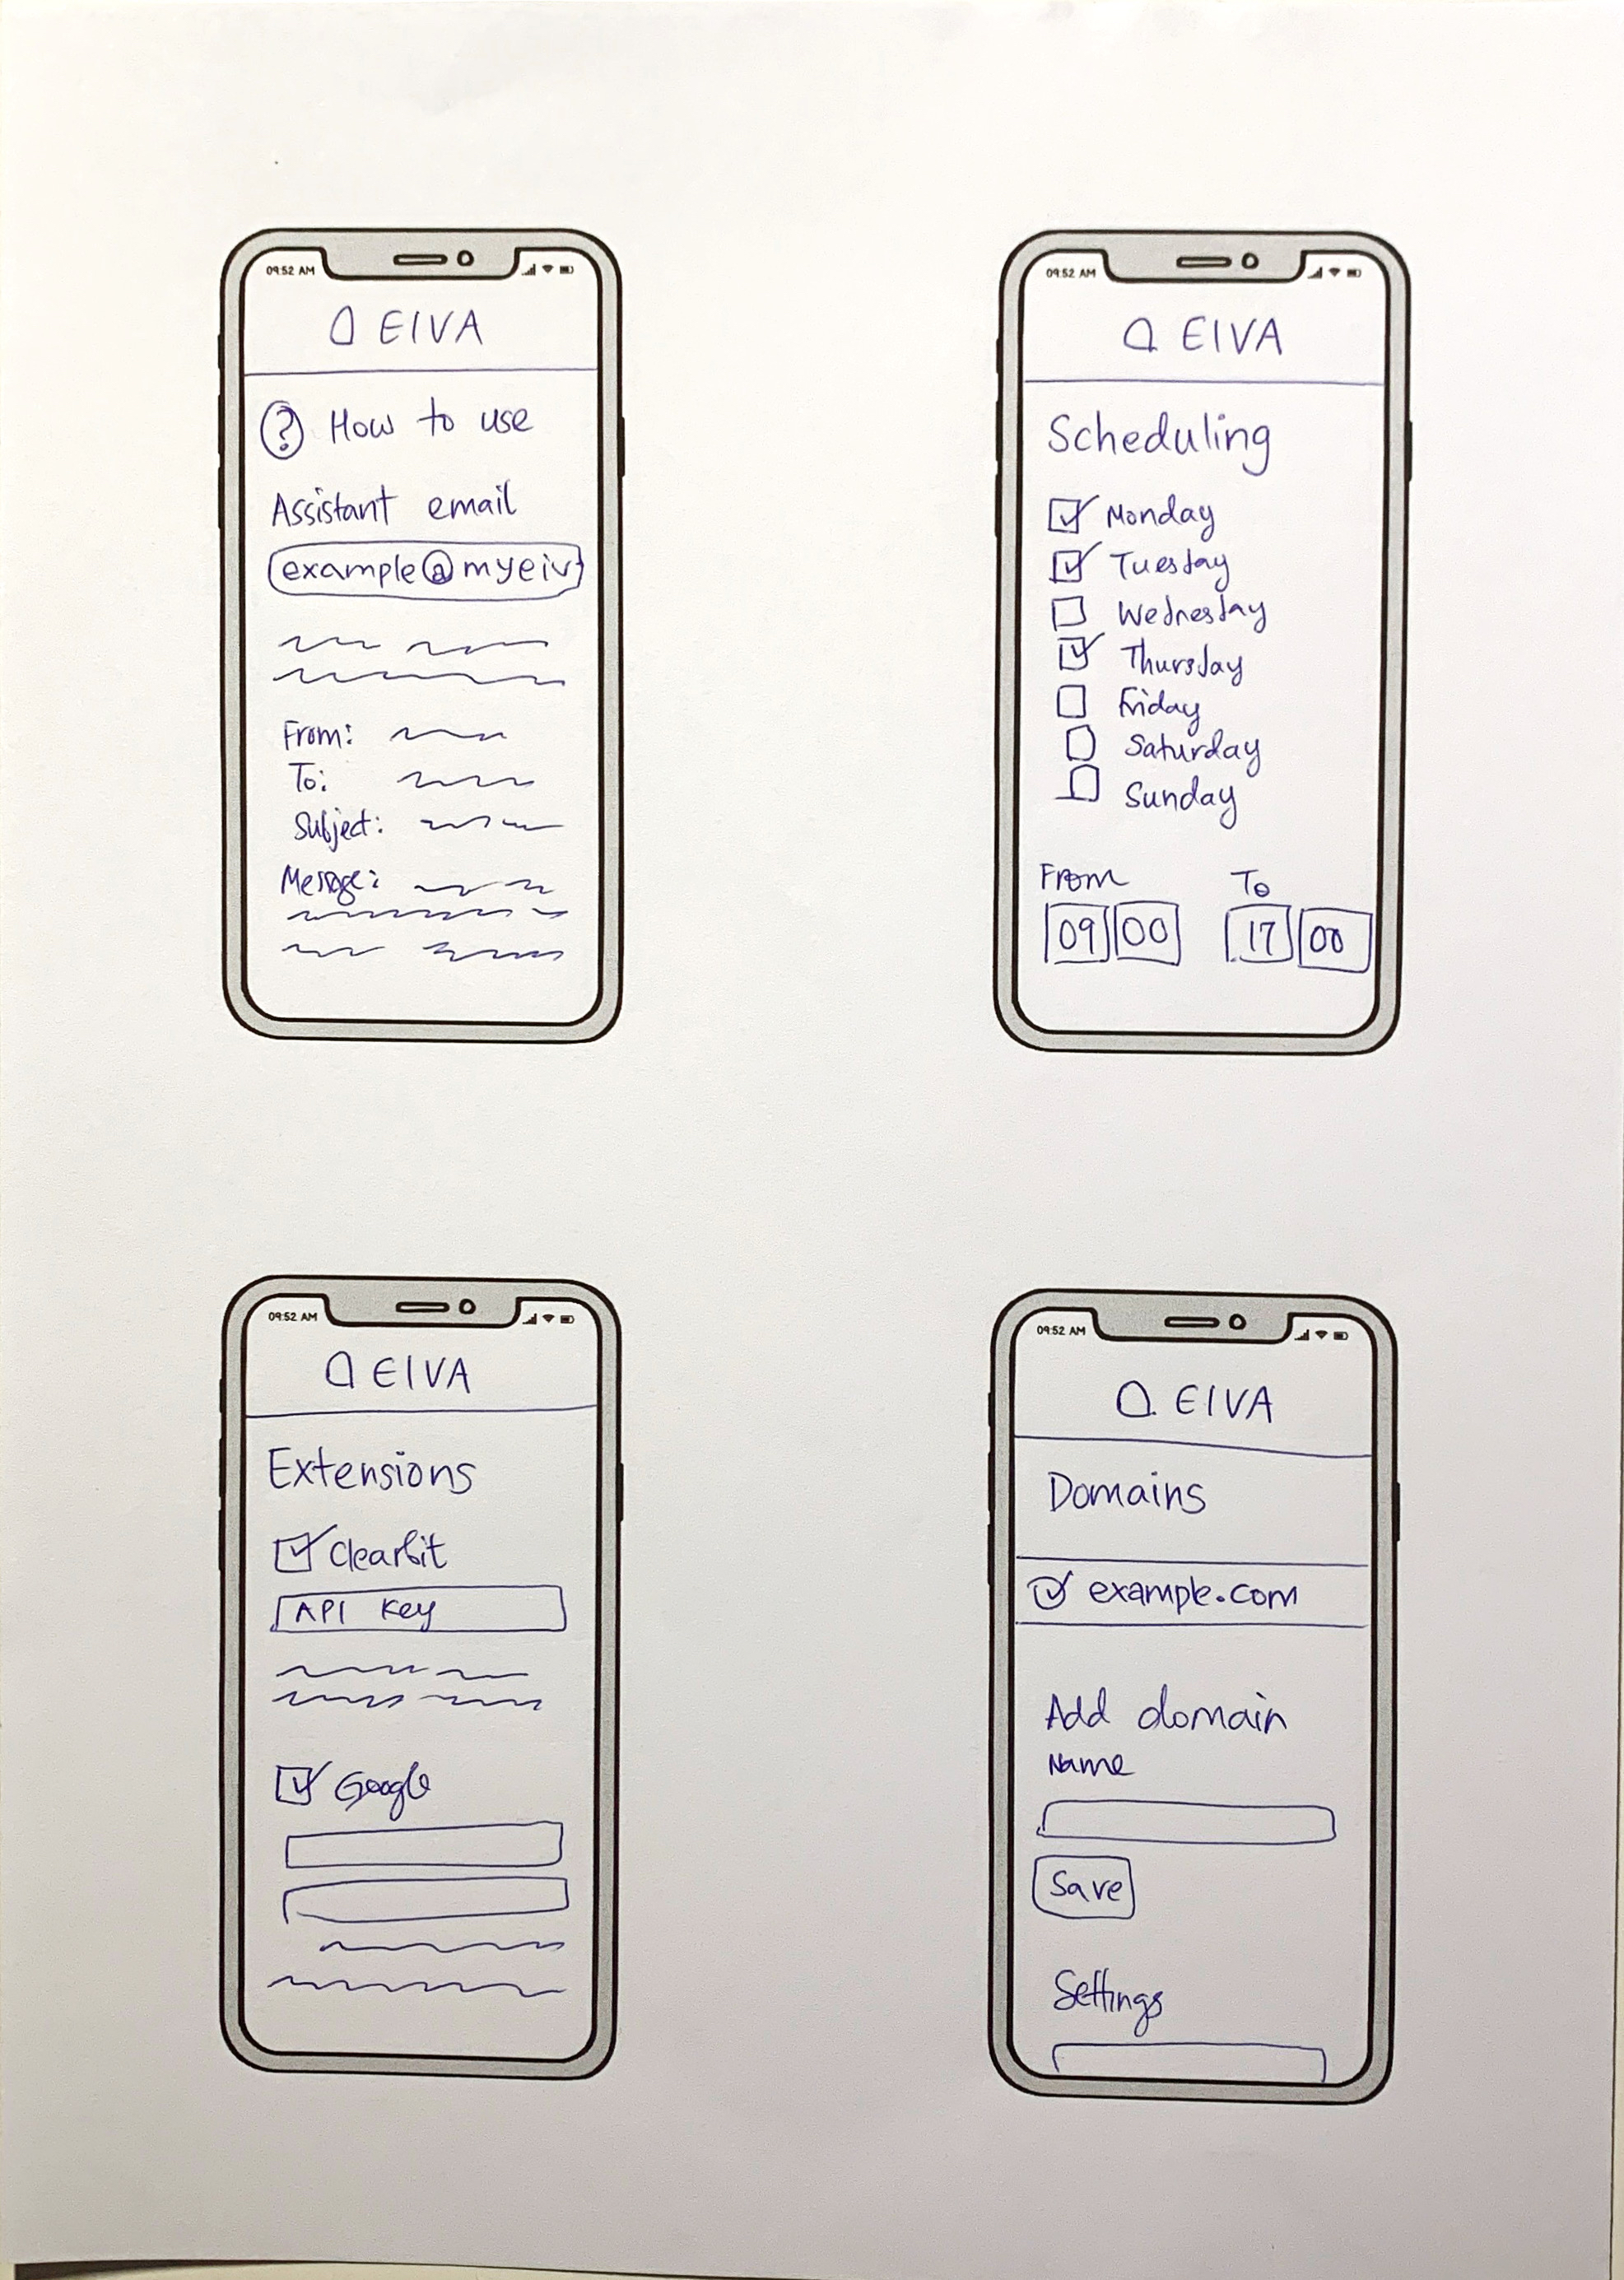 09:52 AM
EIVA
? How to use
Assistant email
example@myeiv
From:
To:
Subject:
Message:
09:52 AM
EIVA
Scheduling
Monday
Tuesday
Wednesday
Thursday
Friday
Saturday
Sunday
From To
09 00 17 00
09:52 AM
EIVA
Extensions
Clearbit
API Key
Google
09:52 AM
EIVA
Domains
example.com
Add domain
Name
Save
Settings